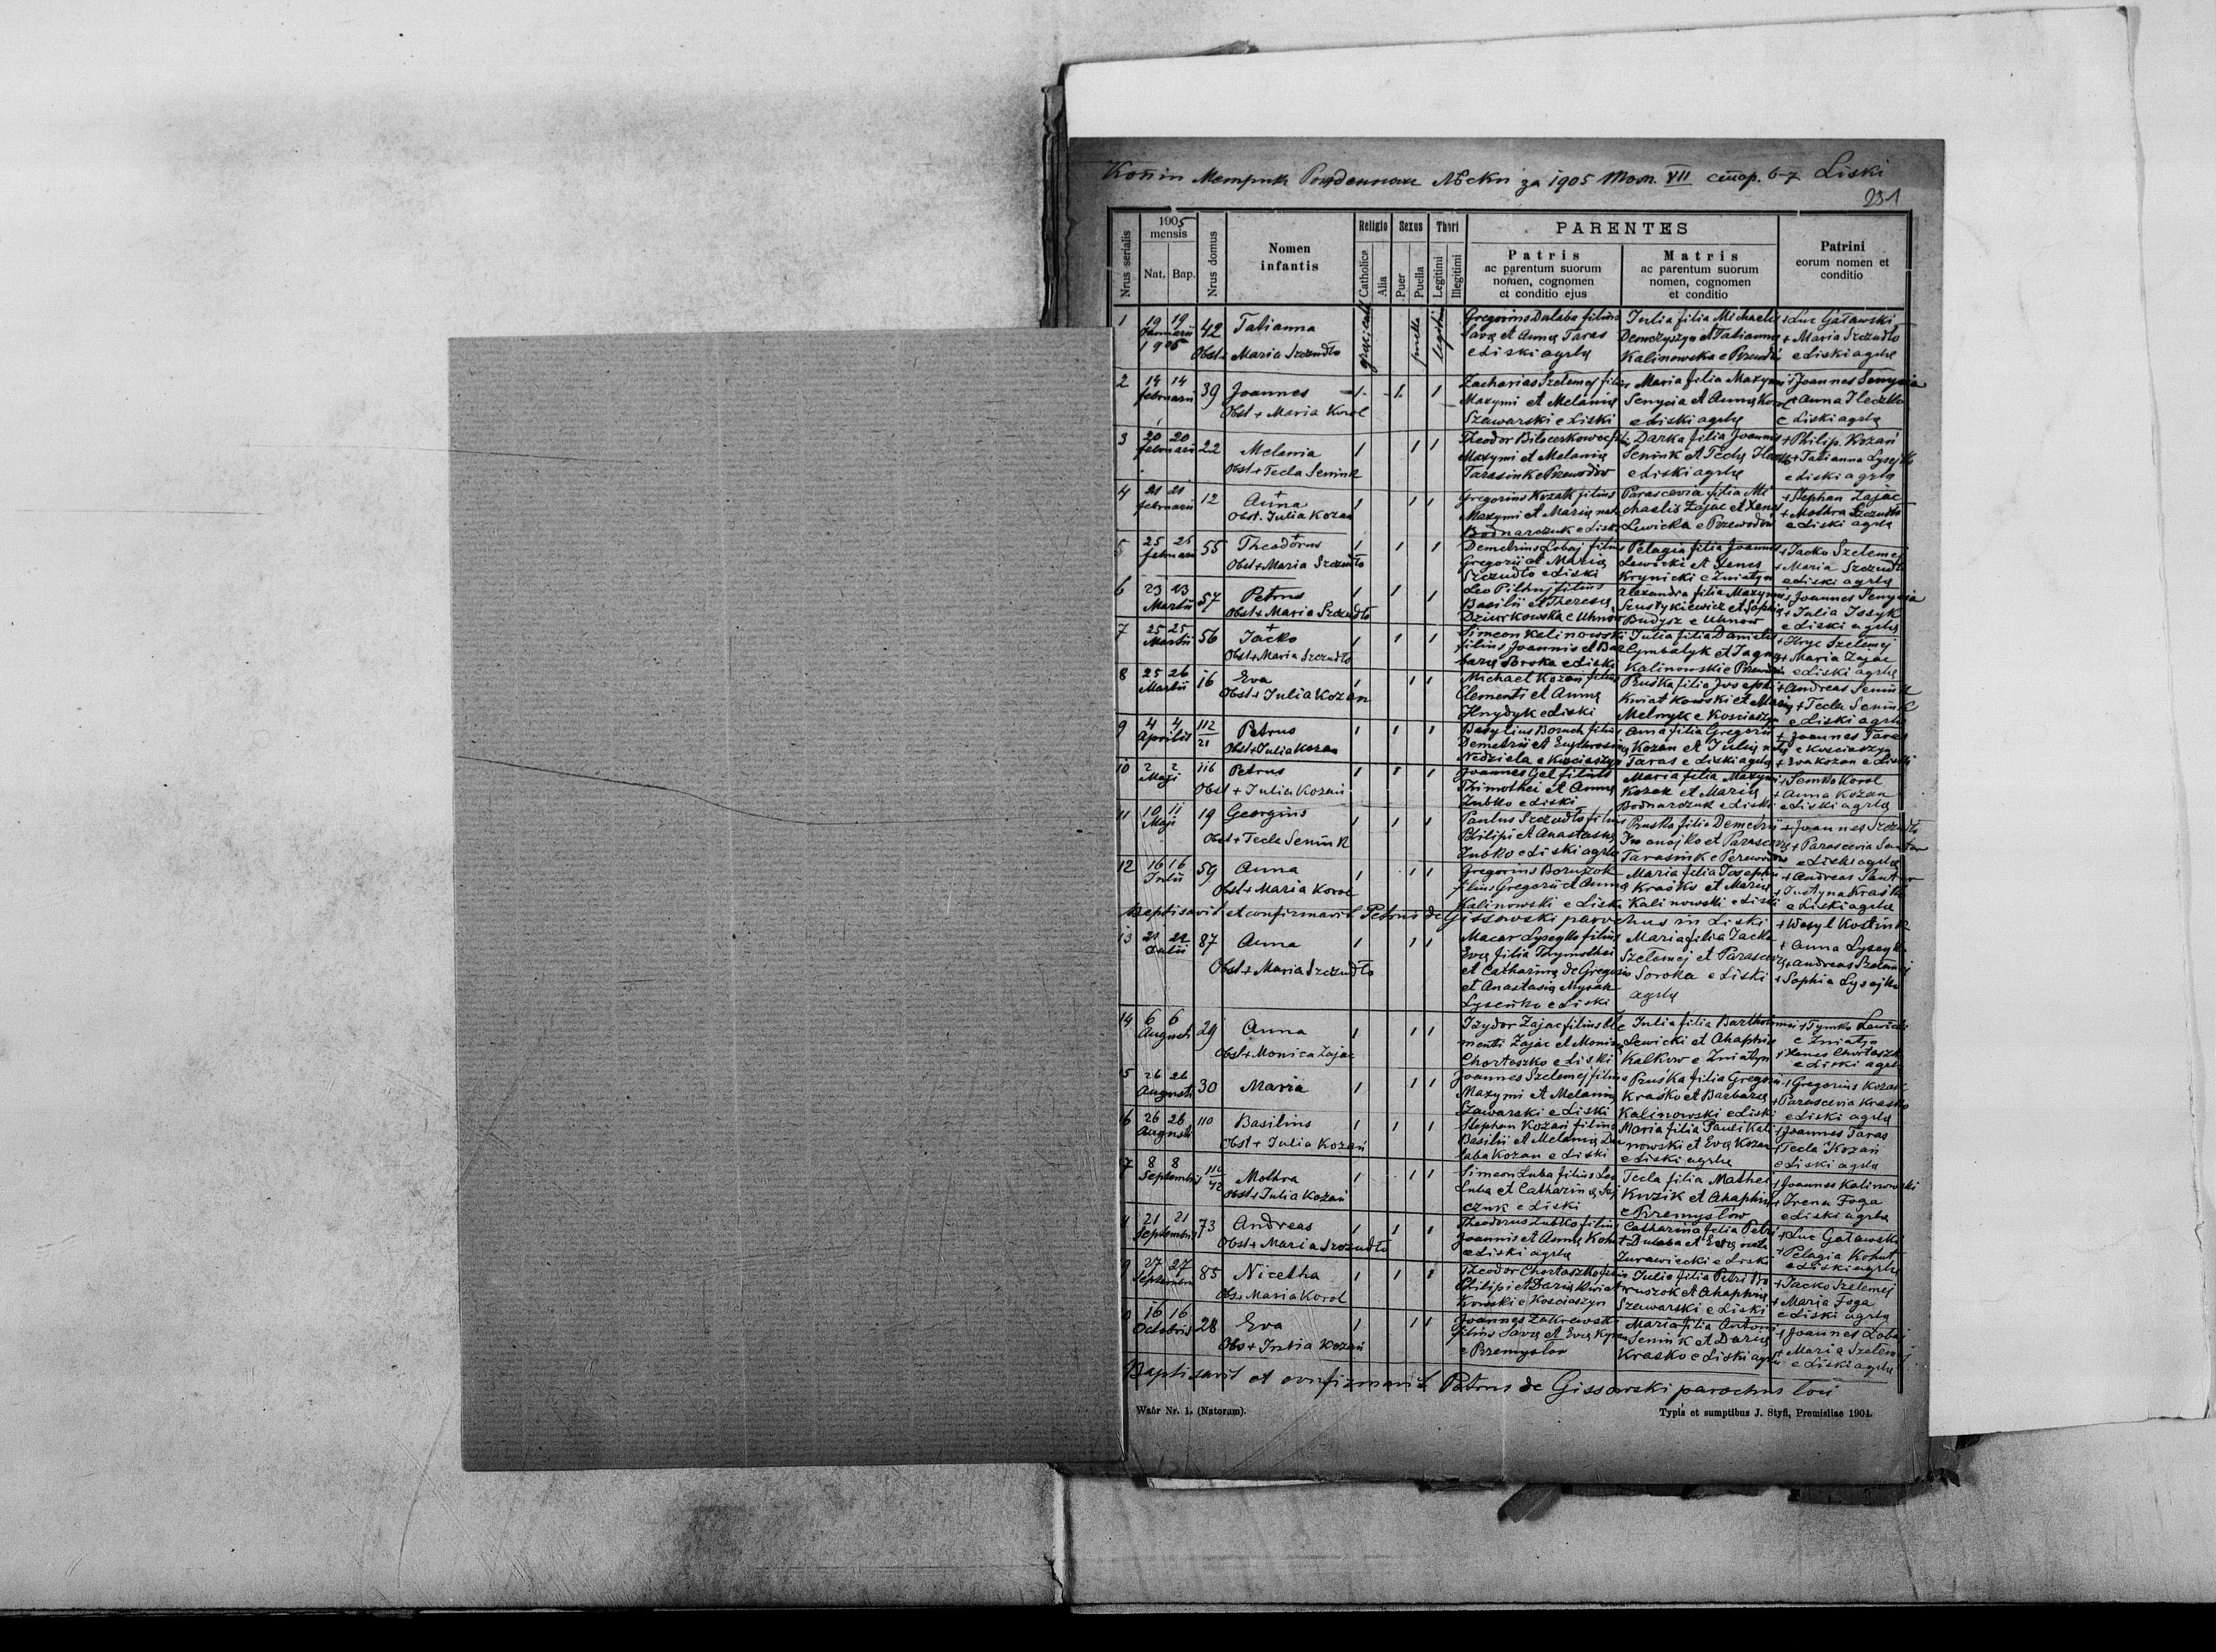 Копія Метрик Рожденных Лѣски за 1905 Том. VII стор. 6-7 Liski
251
Nrus serialis
1905 mensis
Nat. Bap.
Nrus domus
Nomen infantis
Religio Sexus Thori
Catholice Alia Puer Puella Legitimi Illegitimi
PARENTES
Patris
ac parentum suorum
nomen, cognomen
et conditio ejus
Matris
ac parentum suorum
nomen, cognomen
et conditio
Patrini
eorum nomen et
conditio
1 19 19 Januarii 1905 42 Tatianna
Obst + Maria Szczudło
puella
Gregorius Dulaba filius
Savę et Annę Taras
e Liski agrlę
Julia filia Michaelis
Demczyszyn et Tatiannę
Kalinowska e
+ Luc Gatawski
+ Maria Szczudło
e Liski agrlę
2 14 14 februarii 39 Joannes
Obst + Maria Korol
Zacharias Szelemej filius
Maxymi et Melanię
Szewarski e Liski
Maria filia Maxymi
Senycia et Annę
e Liski agrlę
+ Joannes Senycia
+ Anna Ileczko
e Liski agrlę
3 20 20 februarii 22 Melania
Obst + Tecla Seniuk
Maxymi et Melanię
Tarasiuk e Przewodów
Darka filia Joannis
Seniuk et Teclę
e Liski agrlę
+ Philip. Kozań
+ Tatianna Lysejko
e Liski agrlę
4 21 21 februarii 12 Anna
Obst. Julia Kozań
Gregorius Kozak filius
Maxymi et Marię natę
Bodnarczuk e Liski
Parascevia filia Mi
chaelis Zajac et Xenę
Lewicka e Przewodów
+ Stephan Zajac
+ Mothra Szczudło
e Liski agrlę
5 25 25 februarii 55 Theodorus
Obst + Maria Szczudło
Demetrius Lobaj filius
Gregorii et Marię
Szczudło e Liski
Pelagia filia Joannis
Lewicki et Xenes
Krynicki e Zniatyn
+ Jacko Szelemej
+ Maria Szczudło
e Liski agrlę
6 23 23 Martii 57 Petrus
Obst + Maria Szczudło
Leo Pilhuj filius
Basilii et Theresę
Dziurkowska e Uhnow
Alexandra filia Maxymi
Szustykiewicz et Sophię
Budysz e Uhnow
+ Joannes Senycia
+ Julia Jssyk
e Liski agrlę
7 25 25 Martii 56 Jacko
Obst + Maria Szczudło
Simeon Kalinowski
filius Joannis et Bar
barę Soroka e Liski
Julia filia Danielis
Cymbalyk et Jagnę
Kalinowski e
+ Hryc Szelemej
+ Maria Zajac
e Liski agrlę
8 25 26 Martii 16 Eva
Obst + Julia Kozan
Michael Kozań filius
Clementi et Annę
Hnydyk e Liski
Pruśka filia Josephi
Kwiatkowski et Marię
Melnyk e Kosciaszyn
+ Andreas Seniuk
+ Tecla Seniuk
e Liski agrlę
9 4 4 Aprilis 112/21 Petrus
Obst + Julia Kozan
Basylius Boruch filius
Demetrii et Euphrosinę
Nedziela e Kosciaszyn
Anna filia Gregorii
Kozan et Julię natę
Taras e Liski agrlę
+ Joannes Taras
e Kosciaszyn
+ Eva Kozan e Liski
10 2 2 Maji 116 Petrus
Obst + Julia Kozań
Joannes Gel filius
Thimothei et Annę
Zubko e Liski
Maria filia Maxymi
Kozak et Marię
Bodnarczuk e Liski
+ Semko Korol
+ Anna Kozan
e Liski agrlę
11 10 11 Maji 19 Georgius
Obst + Tecla Seniuk
Paulus Szczudło filius
Philipi et Anastasię
Zubko e Liski agrlę
Pruśka filia Demetrii
Iwanojko et Parascevię
Tarasiuk e Przewodów
+ Joannes Szczudło
+ Parascevia Santar
e Liski agrlę
12 16 16 Julii 59 Anna
Obst + Maria Korol
Gregorius Boruszok
filius Gregorii et Annę
Kalinowski e Liski
Maria filia Josephi
Kraśko et Marię
Kalinowski e Liski
+ Andreas Santar
+ Justyna Kraśko
e Liski agrlę
Baptisavit et confirmavit Petrus de Gissowski parochus in Liski
13 21 22 Julii 87 Anna
Obst + Maria Szczudło
Macar Lysejko filius
Evę filia Thymothei
et Catharinę de Gregorio
et Anastasię Mysak
Lysenko e Liski
Maria filia Jacka
Szelemej et Parascevę
Soroka e Liski
agrlę
+ Wasyl Kostiuk
+ Anna Lysejko
+ Andreas Szelemej
+ Sophia Lysejko
14 6 6 Augusti 29 Anna
Obst + Monica Zajac
Izydor Zajac filius Cle
menti Zajac et Monicę
Chortaszko e Liski
Julia filia Bartholomei
Lewicki et Ahaphię
Kalkow e Zniatyn
+ Tymko Lewicki
e Zniatyn
+ Xenes Chortaszko
e Liski agrlę
15 26 26 Augusti 30 Maria
Joannes Szelemej filius
Maxymi et Melanię
Szewarski e Liski
Pruśka filia Gregorii
Kraśko et Barbarę
Kalinowski e Liski
+ Gregorius Kozak
+ Parascevia Krasko
e Liski agrlę
16 26 26 Augusti 110 Basilius
Obst + Julia Kozań
Stephan Kozań filius
Basilii et Melanię Du
laba Kozan e Liski
Maria filia Pauli Kali
nowski et Evę Kozan
e Liski agrlę
+ Joannes Taras
+ Tecla Kozań
e Liski agrlę
17 8 8 Septembris Mothra
Obst + Julia Kozań
Simeon Luba filius Leo
Luba et Catharinę
czuk e Liski
Tecla filia Mathei
Kuzik et Ahaphię
e Przemysłów
+ Joannes Kalinowski
+ Irena Foga
e Liski agrlę
21 21 Septembris 73 Andreas
Obst + Maria Szczudło
Theodorus Zubko filius
Joannis et Annę Kohut
e Liski agrlę
Catharina filia Petri
Dulaba et Evę natę
Zurawiecki e Liski
+ Luc Gatawski
+ Pelagia Kohut
e Liski agrlę
27 27 Septembris 85 Nicetha
Obs. Maria Korol
Theodor Chortaszko filius
Philipi et Darię Kwiat
kowski e Kosciaszyn
Julia filia Petri Bo
ruszok et Ahaphię
Szewarski e Liski
+ Jacko Szelemej
+ Maria Foga
e Liski agrlę
16 16 Octobris 28 Eva
Obs + Julia Kozań
Joannes Zakrewski
filius Savę et Evę
e Przemysłow
Maria filia Antoni
Seniuk et Darię
Krasko e Liski agrlę
+ Joannes Lobaj
+ Maria Szelemej
e Liski agrlę
Baptisavit et confirmavit Petrus de Gissowski parochus loci
Wzór Nr. 1. (Natorum).
Typis et sumptibus J. Styfi, Premisliae 1904.